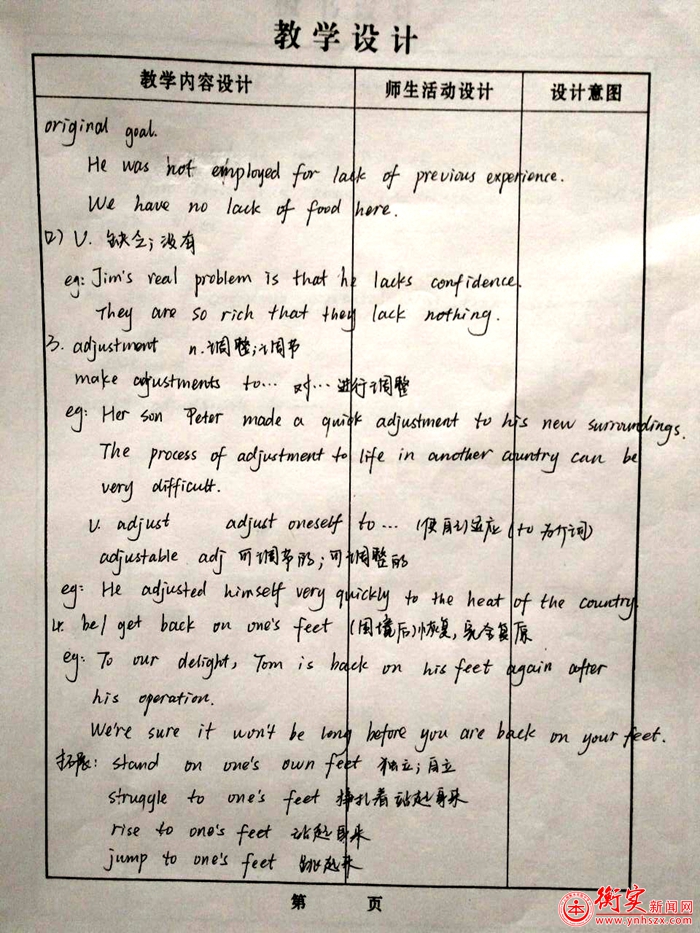 教学设计
教学内容设计 师生活动设计 设计意图
original goal.
He was not employed for lack of previous experience.
We have no lack of food here.
(2) V. 缺乏；没有
eg: Jim's real problem is that he lacks confidence.
They are so rich that they lack nothing.
3. adjustment n. 调整；调节
make adjustments to... 对...进行调整
eg: Her son Peter made a quick adjustment to his new surroundings.
The process of adjustment to life in another country can be
very difficult.
V. adjust adjust oneself to... (使自己)适应 (to 为介词)
adjustable adj 可调节的；可调整的
eg: He adjusted himself very quickly to the heat of the country.
4. be/ get back on one's feet (困境后)恢复，完全复原
eg: To our delight, Tom is back on his feet again after
his operation.
We're sure it won't be long before you are back on your feet.
拓展: stand on one's own feet 独立；自立
struggle to one's feet 挣扎着站起身来
rise to one's feet 站起身来
jump to one's feet 跳起来
第 页
衡实新闻网
www.ynhszx.com